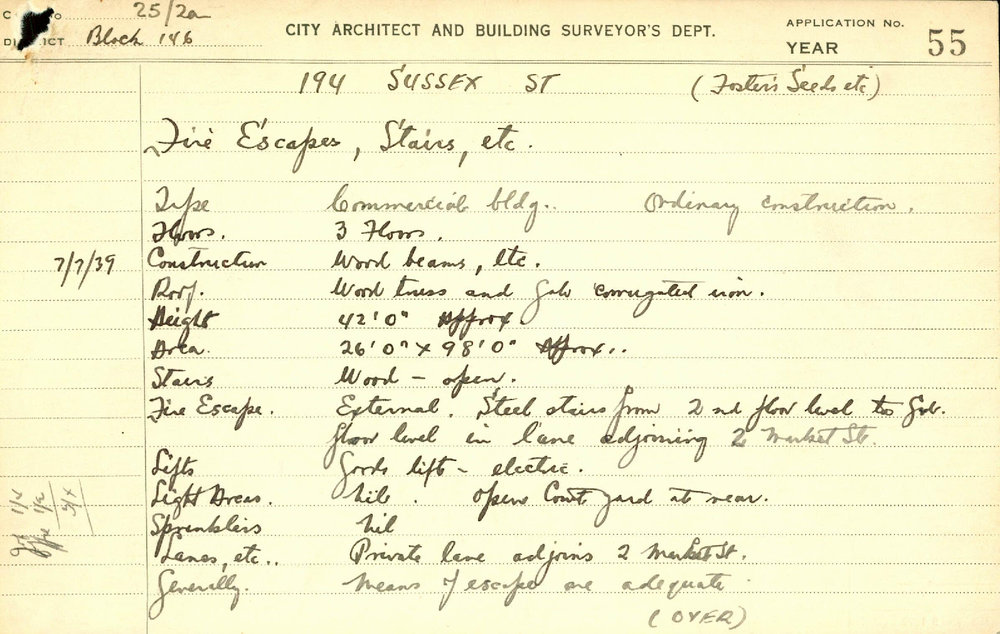 25/2a
Block 146
CITY ARCHITECT AND BUILDING SURVEYOR'S DEPT.
APPLICATION No.
YEAR 55
194 SUSSEX ST (Foster's Seeds etc)
Fire Escapes, Stairs, etc.
Type Commercial bldg.. Ordinary construction.
Floors. 3 Floors.
7/7/39 Construction Wood beams, etc.
Roof. Wood truss and Galv corrugated iron.
Height 42'0" Approx.
Area. 26'0" x 98'0" Approx..
Stairs Wood – open.
Fire Escape. External. Steel stairs from 2nd floor level to
floor level in lane adjoining 2 Market St.
Lifts Goods lift – electric.
Light Areas. Nil. Open Court yard at rear.
Sprinklers Nil
Lanes, etc.. Private lane adjoins 2 Market St.
Generally. Means of escape are adequate
(OVER)